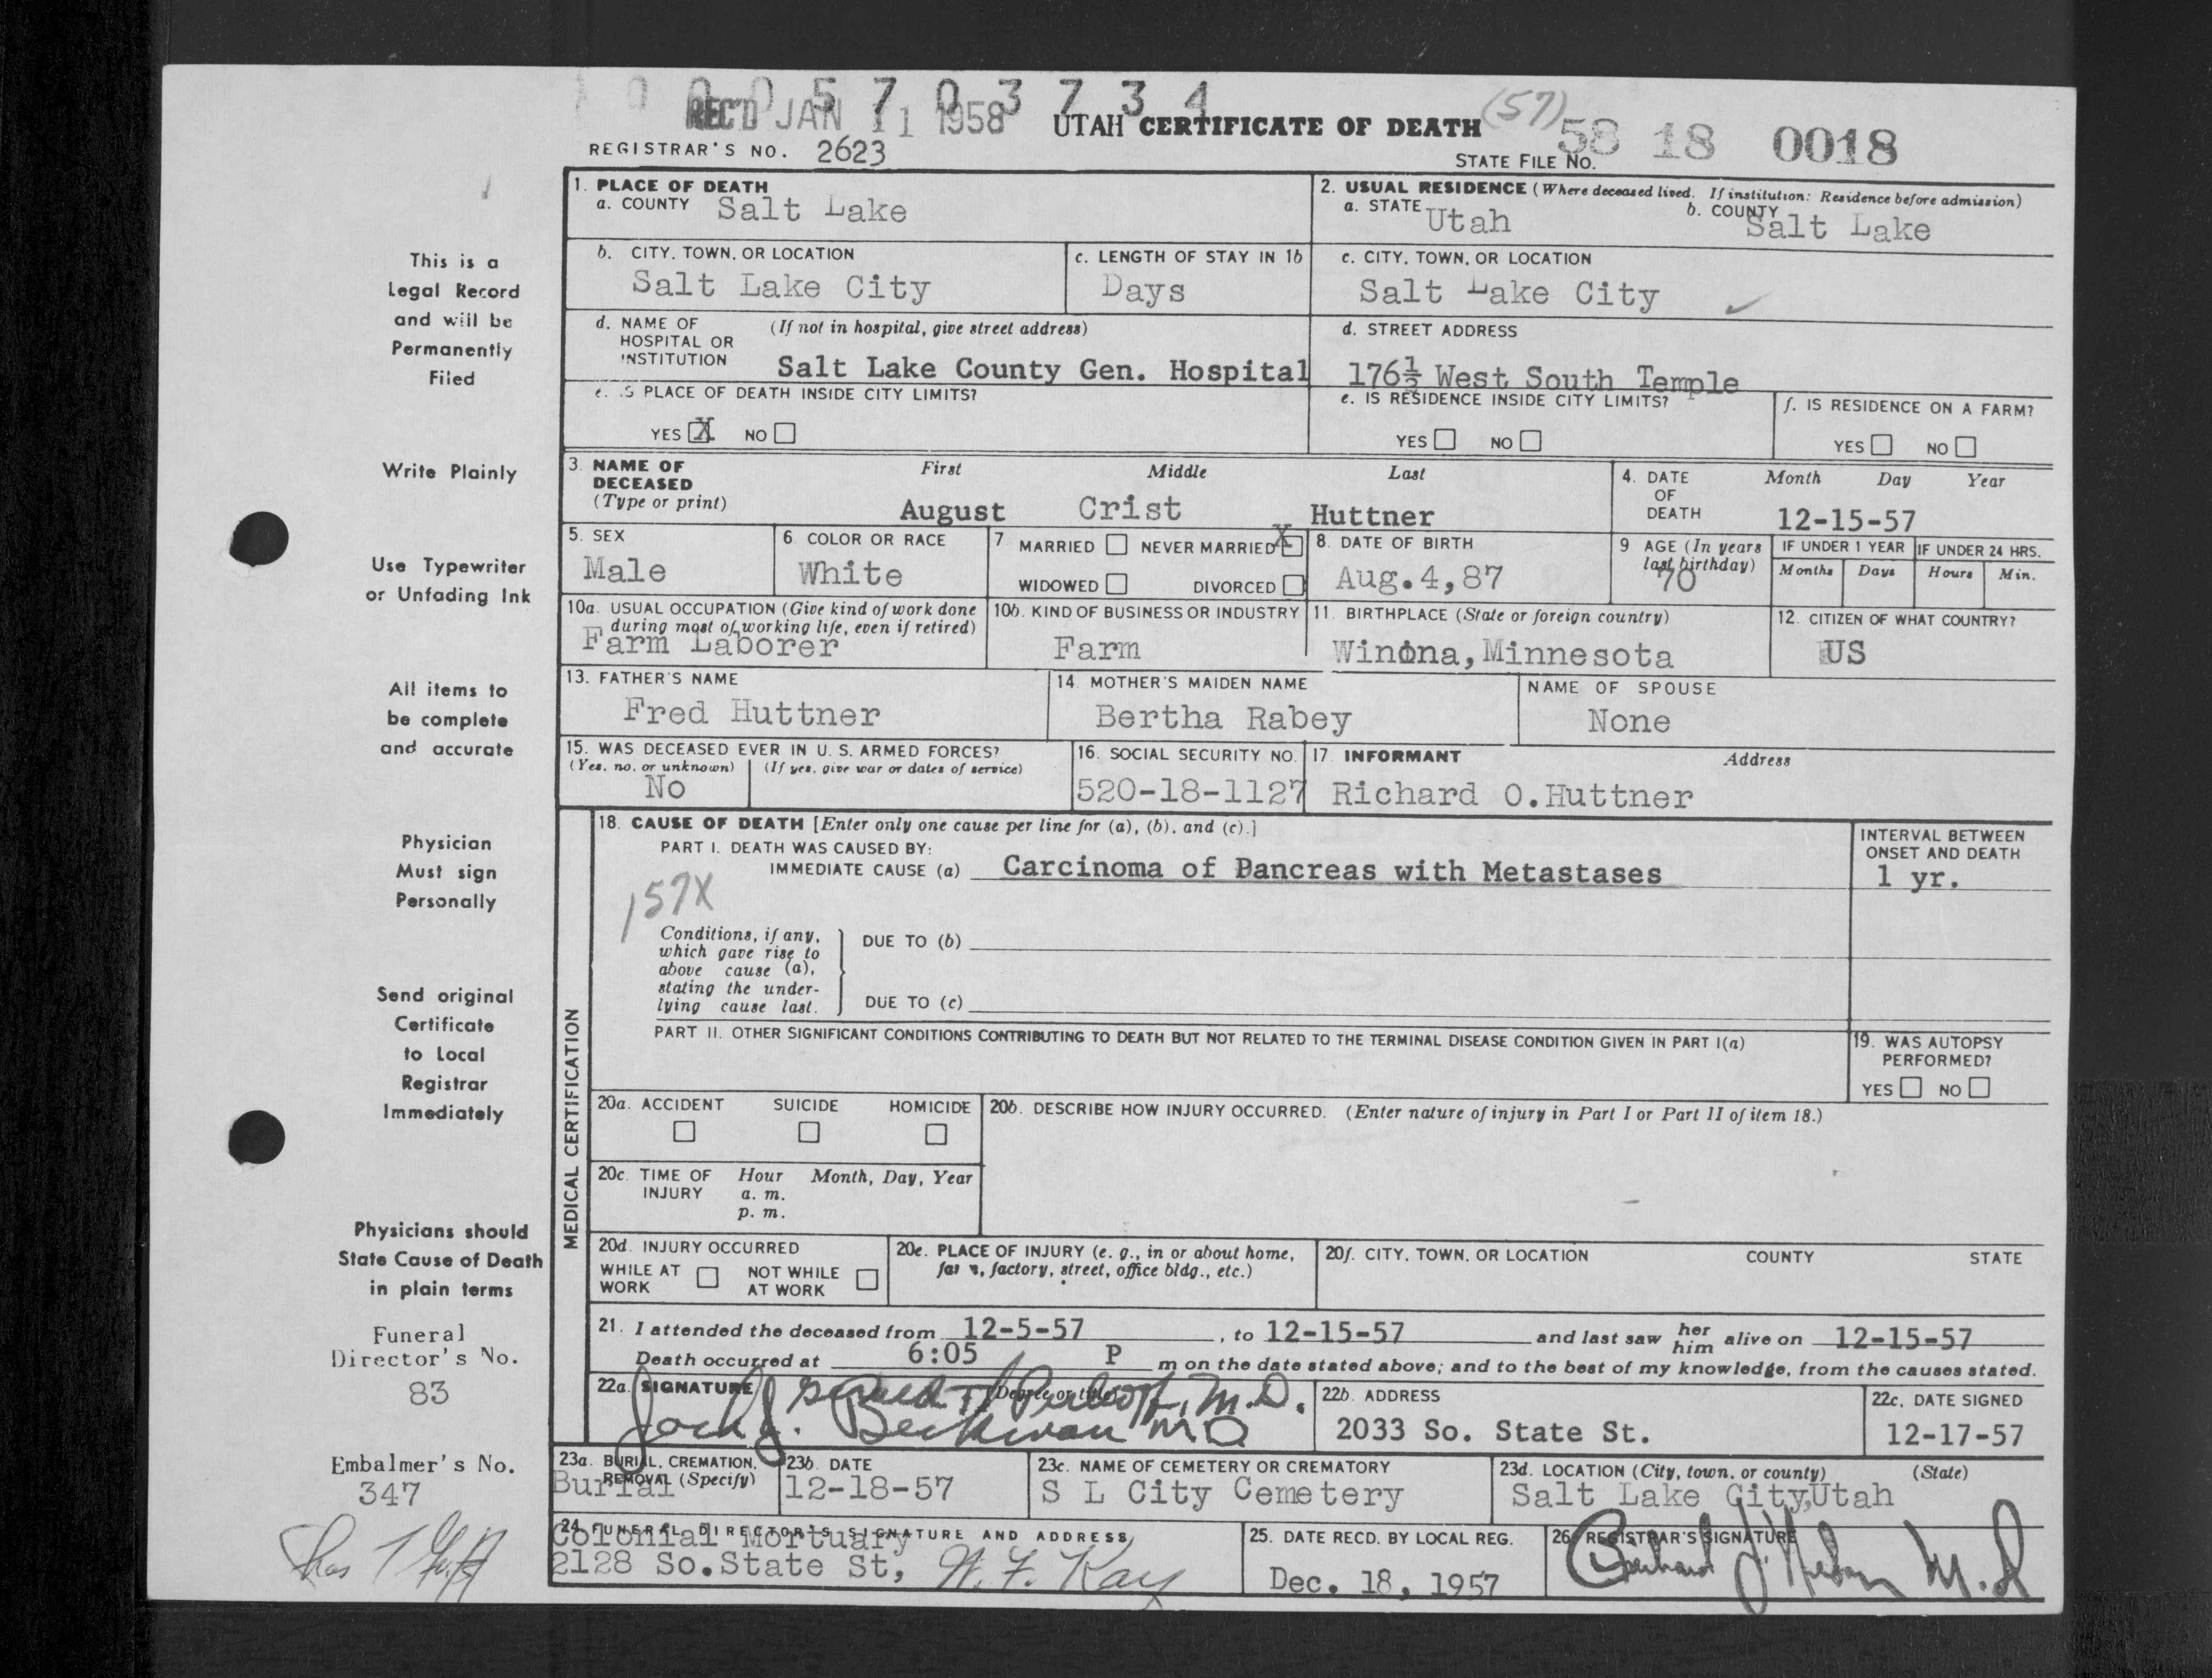 0 0 0 5 7 0 3 7 3 4
REC'D JAN 11 1958
UTAH CERTIFICATE OF DEATH (57)
REGISTRAR'S NO. 2623
STATE FILE NO. 58 18 0018
This is a
Legal Record
and will be
Permanently
Filed
Write Plainly
Use Typewriter
or Unfading Ink
All items to
be complete
and accurate
Physician
Must sign
Personally
Send original
Certificate
to Local
Registrar
Immediately
Physicians should
State Cause of Death
in plain terms
Funeral
Director's No.
83
Embalmer's No.
347
1. PLACE OF DEATH
a. COUNTY Salt Lake
2. USUAL RESIDENCE (Where deceased lived. If institution: Residence before admission)
a. STATE Utah b. COUNTY Salt Lake
b. CITY, TOWN, OR LOCATION
Salt Lake City
c. LENGTH OF STAY IN 1b
Days
c. CITY, TOWN, OR LOCATION
Salt Lake City
d. NAME OF (If not in hospital, give street address)
HOSPITAL OR
INSTITUTION Salt Lake County Gen. Hospital
d. STREET ADDRESS
176½ West South Temple
e. IS PLACE OF DEATH INSIDE CITY LIMITS?
YES X NO
e. IS RESIDENCE INSIDE CITY LIMITS?
YES NO
f. IS RESIDENCE ON A FARM?
YES NO
3. NAME OF First Middle Last
DECEASED
(Type or print) August Crist Huttner
4. DATE Month Day Year
OF
DEATH 12-15-57
5. SEX
Male
6. COLOR OR RACE
White
7. MARRIED NEVER MARRIED X
WIDOWED DIVORCED
8. DATE OF BIRTH
Aug.4,87
9 AGE (In years
last birthday)
70
IF UNDER 1 YEAR IF UNDER 24 HRS.
Months Days Hours Min.
10a. USUAL OCCUPATION (Give kind of work done
during most of working life, even if retired)
Farm Laborer
10b. KIND OF BUSINESS OR INDUSTRY
Farm
11. BIRTHPLACE (State or foreign country)
Winona,Minnesota
12. CITIZEN OF WHAT COUNTRY?
US
13. FATHER'S NAME
Fred Huttner
14. MOTHER'S MAIDEN NAME
Bertha Rabey
NAME OF SPOUSE
None
15. WAS DECEASED EVER IN U. S. ARMED FORCES?
(Yes, no, or unknown) (If yes, give war or dates of service)
No
16. SOCIAL SECURITY NO.
520-18-1127
17. INFORMANT Address
Richard O.Huttner
MEDICAL CERTIFICATION
18. CAUSE OF DEATH [Enter only one cause per line for (a), (b), and (c).]
PART I. DEATH WAS CAUSED BY:
IMMEDIATE CAUSE (a) Carcinoma of Pancreas with Metastases
INTERVAL BETWEEN
ONSET AND DEATH
1 yr.
157X
Conditions, if any,
which gave rise to
above cause (a),
stating the under-
lying cause last.
DUE TO (b)
DUE TO (c)
PART II. OTHER SIGNIFICANT CONDITIONS CONTRIBUTING TO DEATH BUT NOT RELATED TO THE TERMINAL DISEASE CONDITION GIVEN IN PART I(a)
19. WAS AUTOPSY
PERFORMED?
YES NO
20a. ACCIDENT SUICIDE HOMICIDE
20b. DESCRIBE HOW INJURY OCCURRED. (Enter nature of injury in Part I or Part II of item 18.)
20c. TIME OF Hour Month, Day, Year
INJURY a. m.
p. m.
20d. INJURY OCCURRED
WHILE AT NOT WHILE
WORK AT WORK
20e. PLACE OF INJURY (e. g., in or about home,
farm, factory, street, office bldg., etc.)
20f. CITY, TOWN, OR LOCATION COUNTY STATE
21. I attended the deceased from 12-5-57, to 12-15-57 and last saw her him alive on 12-15-57
Death occurred at 6:05 P m on the date stated above; and to the best of my knowledge, from the causes stated.
22a. SIGNATURE (Degree or title) M.D.
Jack J. Beckman MD
22b. ADDRESS
2033 So. State St.
22c. DATE SIGNED
12-17-57
23a. BURIAL, CREMATION,
REMOVAL (Specify)
Burial
23b. DATE
12-18-57
23c. NAME OF CEMETERY OR CREMATORY
S L City Cemetery
23d. LOCATION (City, town, or county) (State)
Salt Lake City,Utah
24. FUNERAL DIRECTOR'S SIGNATURE AND ADDRESS
Colonial Mortuary
2128 So.State St, W. F. Kay
25. DATE RECD. BY LOCAL REG.
Dec. 18, 1957
26. REGISTRAR'S SIGNATURE
M.D